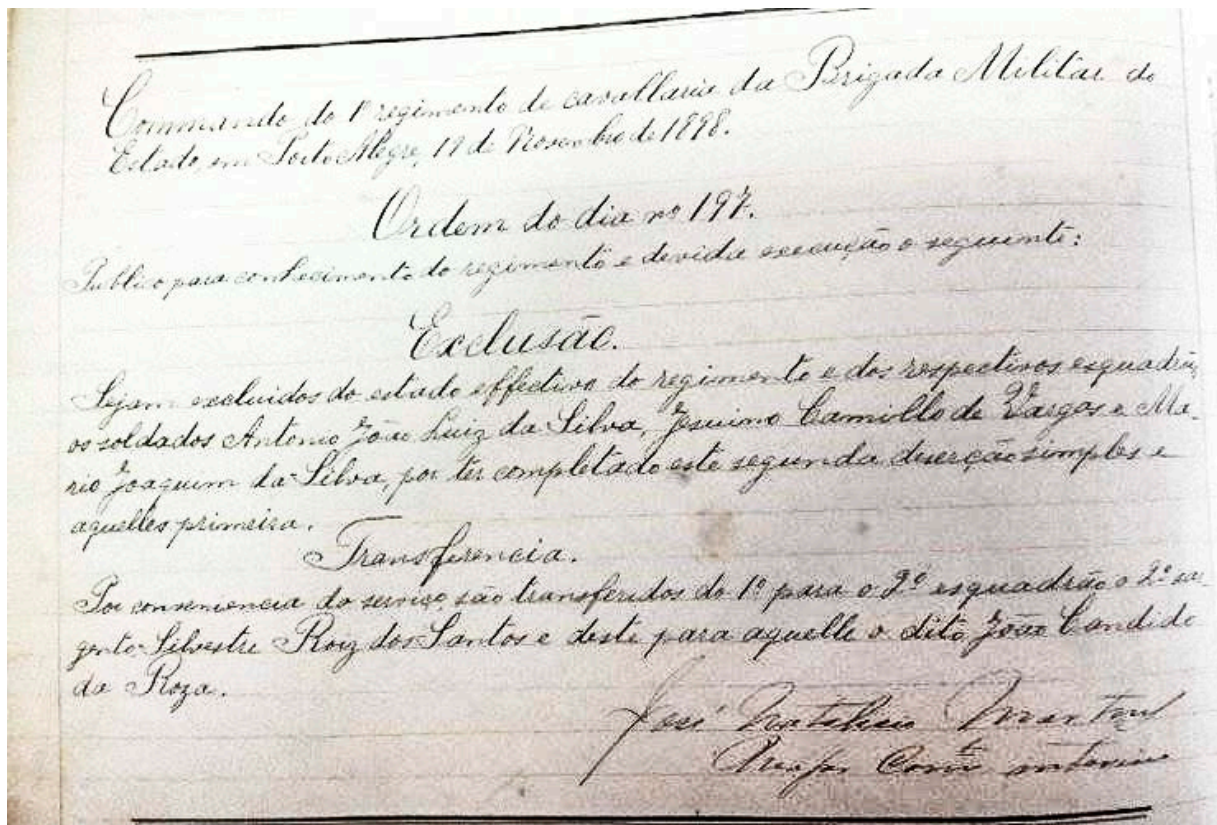 Commando do 1º regimento de cavallaria da Brigada Militar do
Estado, em Porto Alegre, 19 de Novembro de 1898.
Ordem do dia nº 197.
Publico para conhecimento do regimento e devida execução o seguinte:
Exclusão.
Sejam excluidos do estado effectivo do regimento e dos respectivos esquadrões,
os soldados Antonio João Luiz da Silva, Jesuino Camillo de Vargas e Ma-
rio Joaquim da Silva, por ter completado este segunda deserção simples e
aquelles primeira.
Transferencia.
Por conveniencia do serviço, são transferidos do 1º para o 2º esquadrão o 2º sar-
gento Silvestre Roiz dos Santos e deste para aquelle o dito João Candido
da Roza.
José Natalicio Martins
Major Comte interino